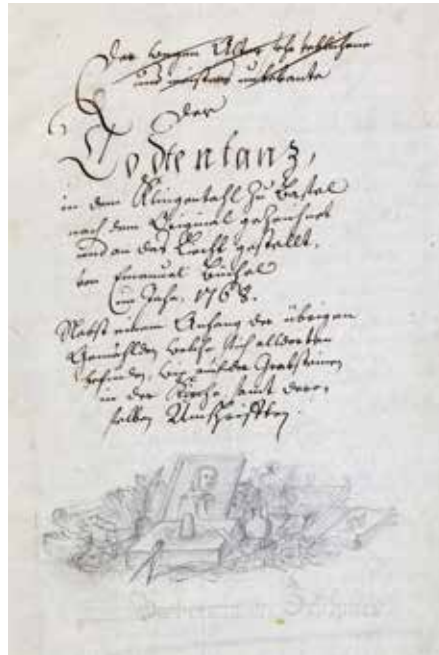 Der wegen Alter sehr verblichene
und meistens unbekante
Der
Todtentanz,
in dem Klingenthal zu Basel
nach dem Original gezeichnet
und an das Licht gestellt,
von Emanuel Büchel
im Jahr, 1768.
Nebst einem Anhang der übrigen
Gemählden welche sich alldorten
befinden, wie auch der Grabsteinen
in der Kirche, samt dero-
selben Umschrifften.